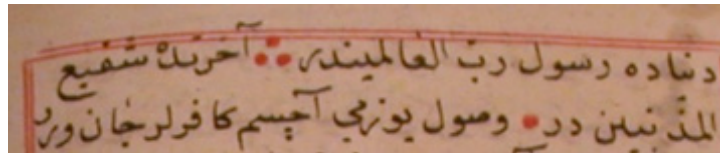 دنیاده رسول رب العالمیندر آخرتده شفیع
المذنبین در وصول یوزمی آچسم کافرلر جان ویرر